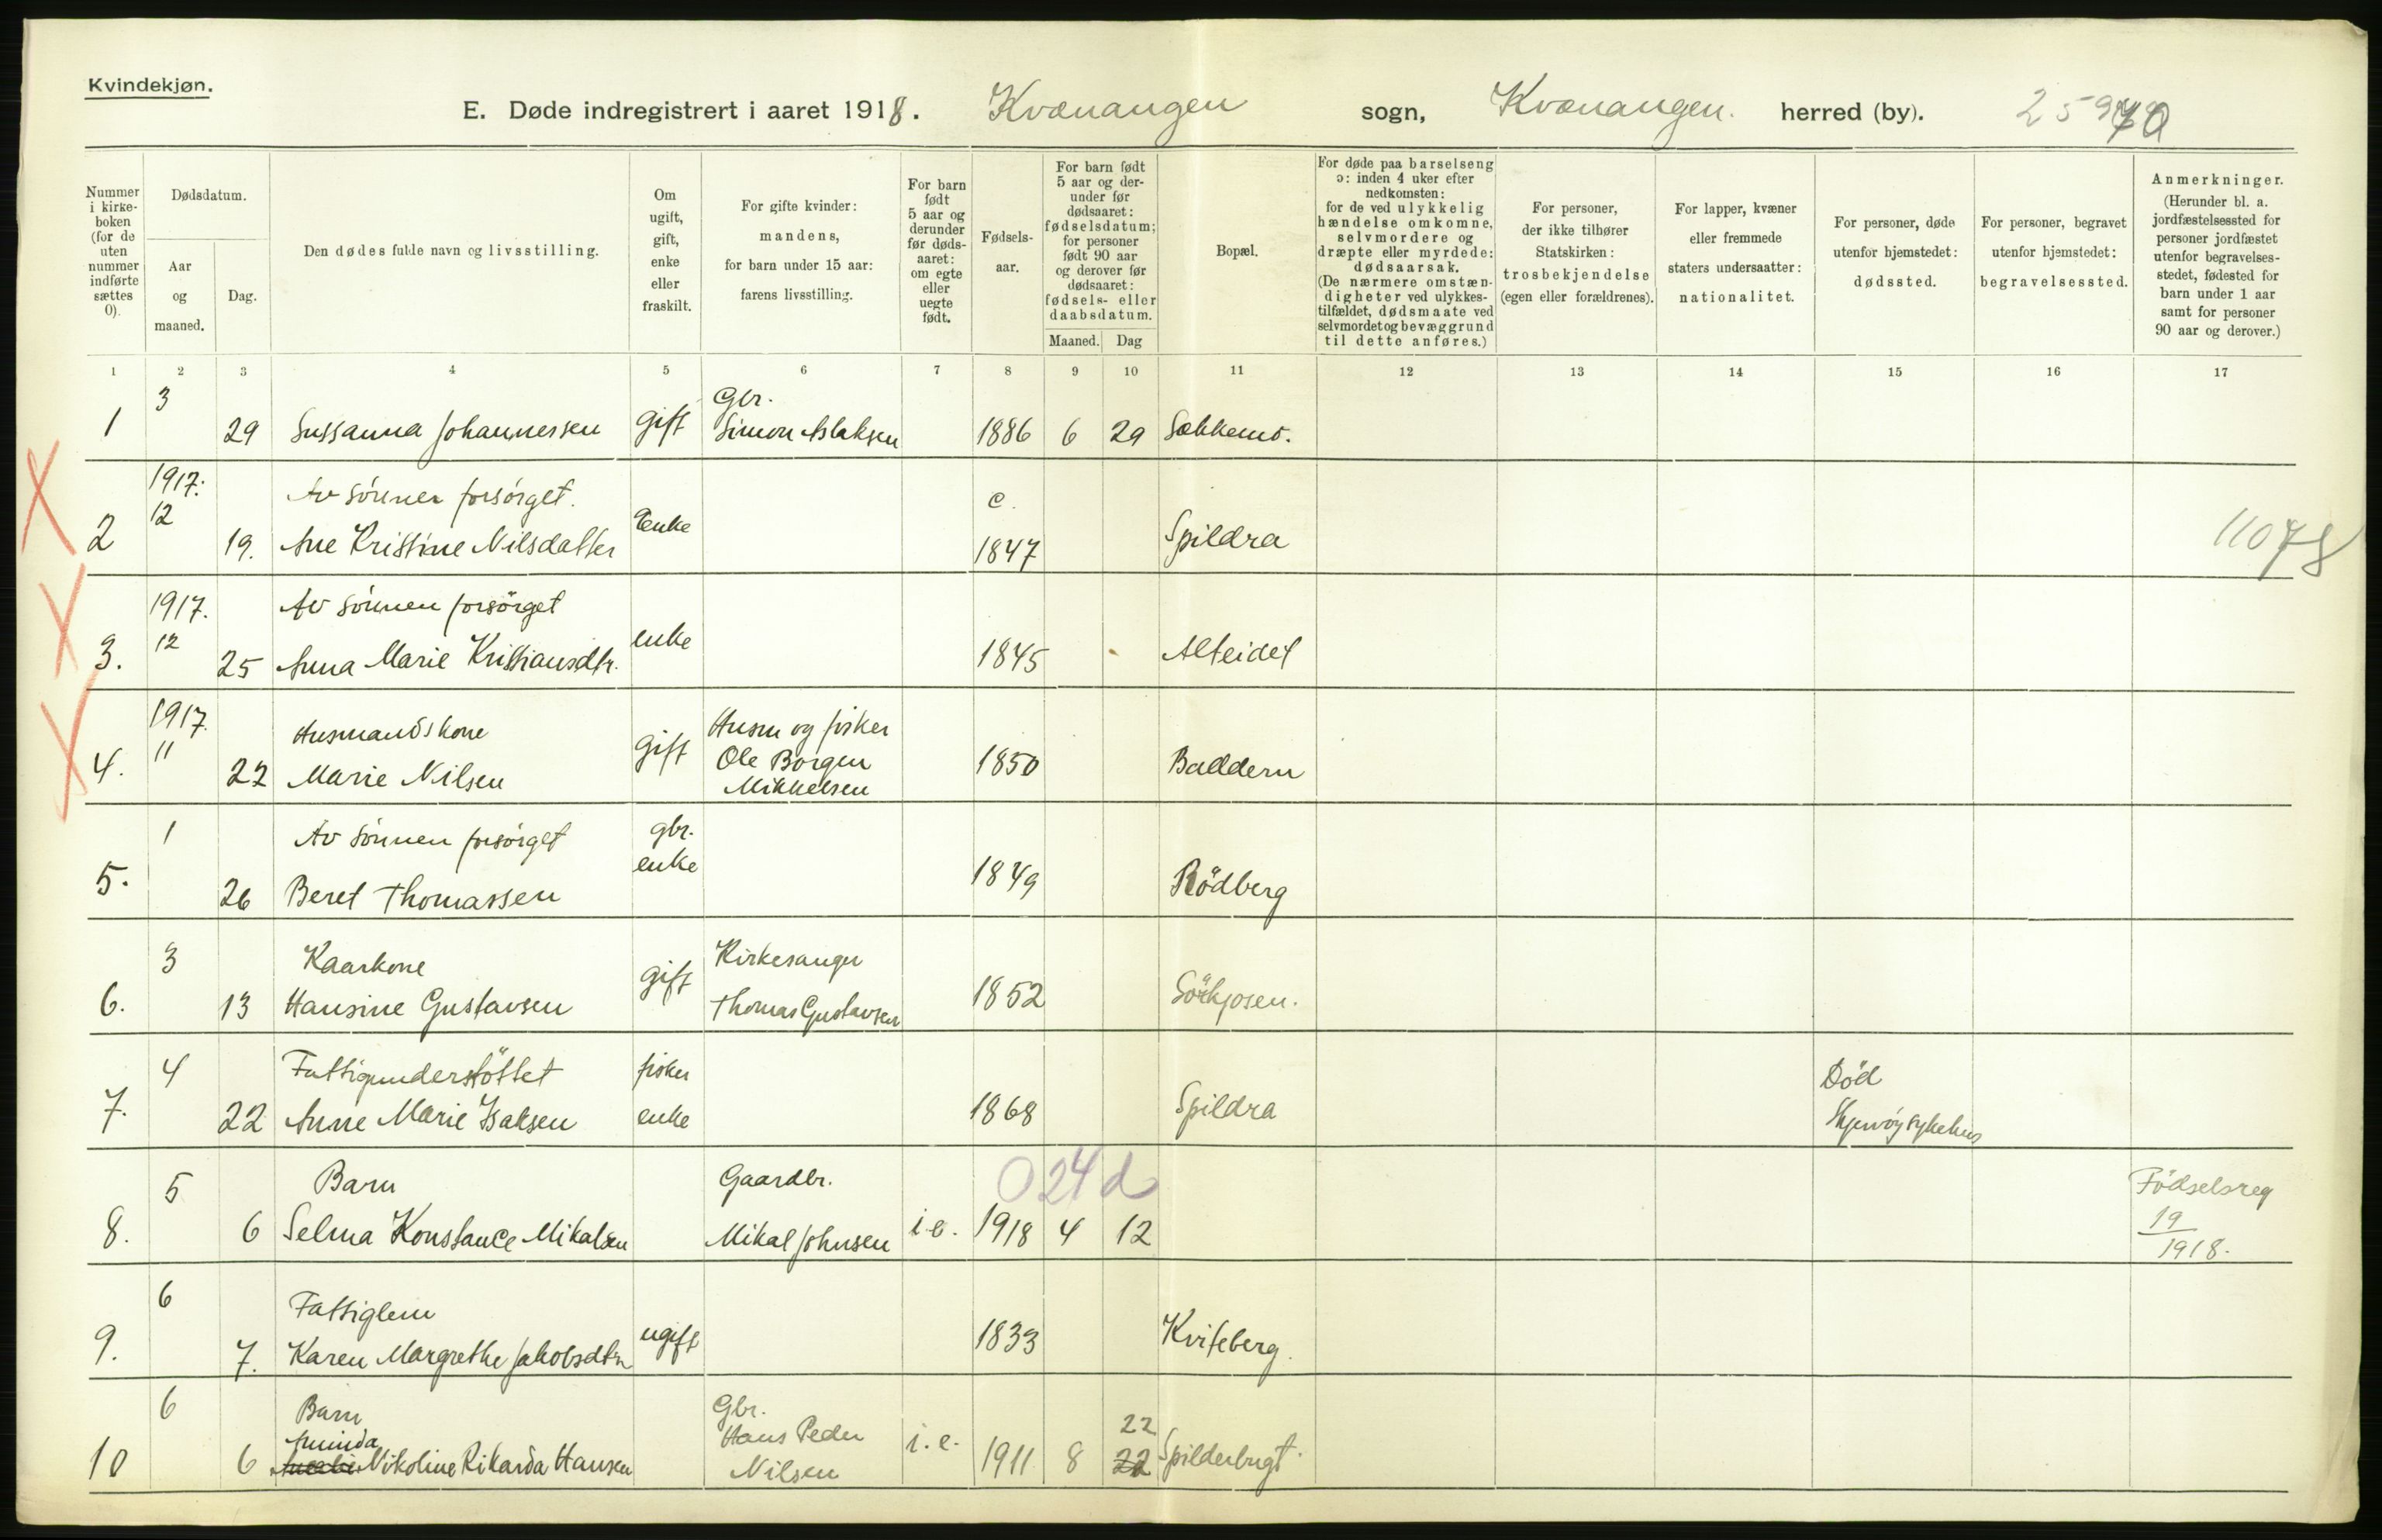 Kvindekjøn.
E. Døde indregistrert i aaret 1918. Kvænangen sogn, Kvænangen. herred (by).
Nummer i kirke-boken (for de uten nummer indførte sættes 0).
Dødsdatum.
Aar og maaned.
Dag.
Den dødes fulde navn og livsstilling.
Om ugift, gift, enke eller fraskilt.
For gifte kvinder: mandens, for barn under 15 aar: farens livsstilling.
For barn født 5 aar og derunder før døds-aaret: om egte eller uegte født.
Fødsels-aar.
For barn født 5 aar og der-under før dødsaaret: fødselsdatum; for personer født 90 aar og derover før dødsaaret: fødsels- eller daabsdatum.
Maaned. Dag
Bopæl.
For døde paa barselseng ɔ: inden 4 uker efter nedkomsten: for de ved ulykkelig hændelse omkomne, selvmordere og dræpte eller myrdede: dødsaarsak. (De nærmere omstæn-digheter ved ulykkes-tilfældet, dødsmaate ved selvmordet og bevæggrund til dette anføres.)
For personer, der ikke tilhører Statskirken: trosbekjendelse (egen eller forældrenes).
For lapper, kvæner eller fremmede staters undersaatter: nationalitet.
For personer, døde utenfor hjemstedet: dødssted.
For personer, begravet utenfor hjemstedet: begravelsessted.
Anmerkninger. (Herunder bl. a. jordfæstelsessted for personer jordfæstet utenfor begravelses-stedet, fødested for barn under 1 aar samt for personer 90 aar og derover.)
1 2 3 4 5 6 7 8 9 10 11 12 13 14 15 16 17
3 Gbr.
1 29 Sussanna Johannessen gift Simon Aslaksen 1886 6 29 Sækkemo.
1917: Av sönnen forsörget. c.
12
2 19. Ane Kristine Nilsdatter Enke 1847 Spildra 11078
1917. Av sönnen forsörget
12
3. 25 Anna Marie Kristiansdtr. enke 1845 Alteidet
1917. Husmandskone Husm og fisker
11 gift Ole Borgen
4. 22 Marie Nilsen Mikkelsen 1850 Baddern
1 Av sönnen forsörget gbr.
5. 26 Beret Thomassen enke 1849 Rödberg
3 Kaarkone Kirkesanger
6. 13 Hansine Gustavsen gift Thomas Gustavsen 1852 Sörkjosen.
4 Fattigunderstöttet fisker Död
7. 22 Anne Marie Isaksen enke 1868 Spildra Skjervöy sykehus
5 Barn Gaardbr. 0 24 d Födselsreg
8. 6 Selma Konstance Mikalsen Mikal Johnsen i.e. 1918 4 12 19/1918.
6 Fattiglem
9. 7. Karen Margrethe Jakobsdtr ugift 1833 Kviteberg.
6 Barn Gbr.
Aminda Hans Peder 22
10 6 Nikoline Rikarda Hansen Nilsen i.e. 1911 8 22 Spilderbugt.